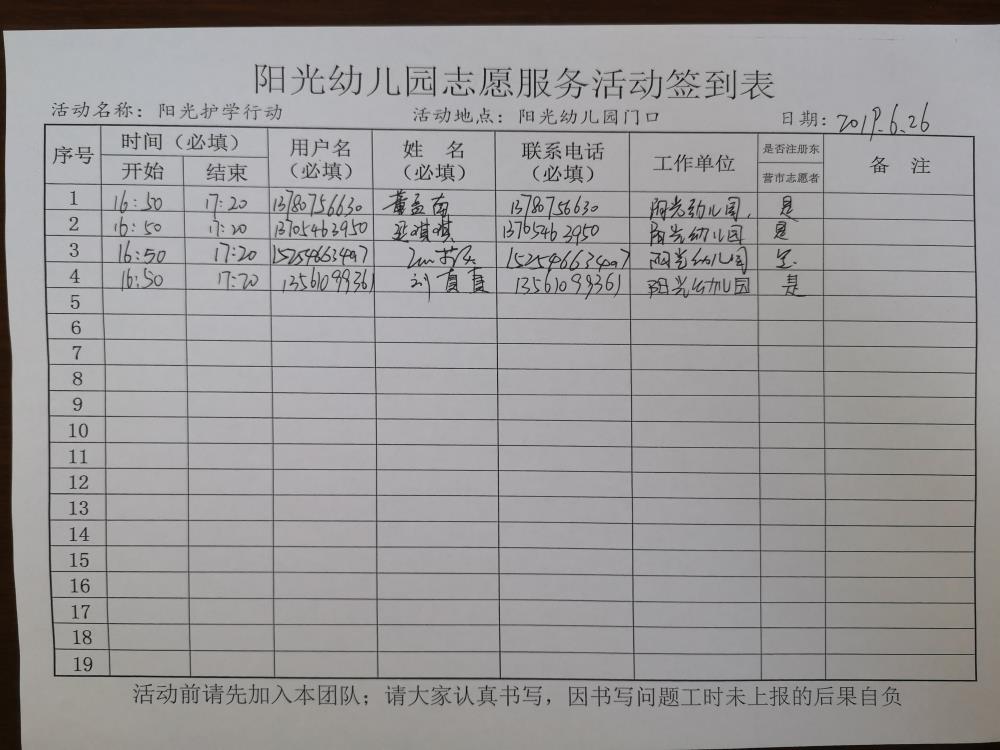 阳光幼儿园志愿服务活动签到表
活动名称：阳光护学行动 活动地点：阳光幼儿园门口 日期：2019.6.26
序号 时间（必填） 用户名（必填） 姓 名（必填） 联系电话（必填） 工作单位 是否注册东营市志愿者 备 注
开始 结束
1 16:50 17:20 13780756630 董孟南 13780756630 阳光幼儿园. 是
2 16:50 17:20 13705463950 琪琪 13705463950 阳光幼儿园 是
3 16:50 17:20 15254663497 15254663497 阳光幼儿园 是
4 16:50 17:20 13561099361 刘真真 13561099361 阳光幼儿园 是
5
6
7
8
9
10
11
12
13
14
15
16
17
18
19
活动前请先加入本团队；请大家认真书写，因书写问题工时未上报的后果自负